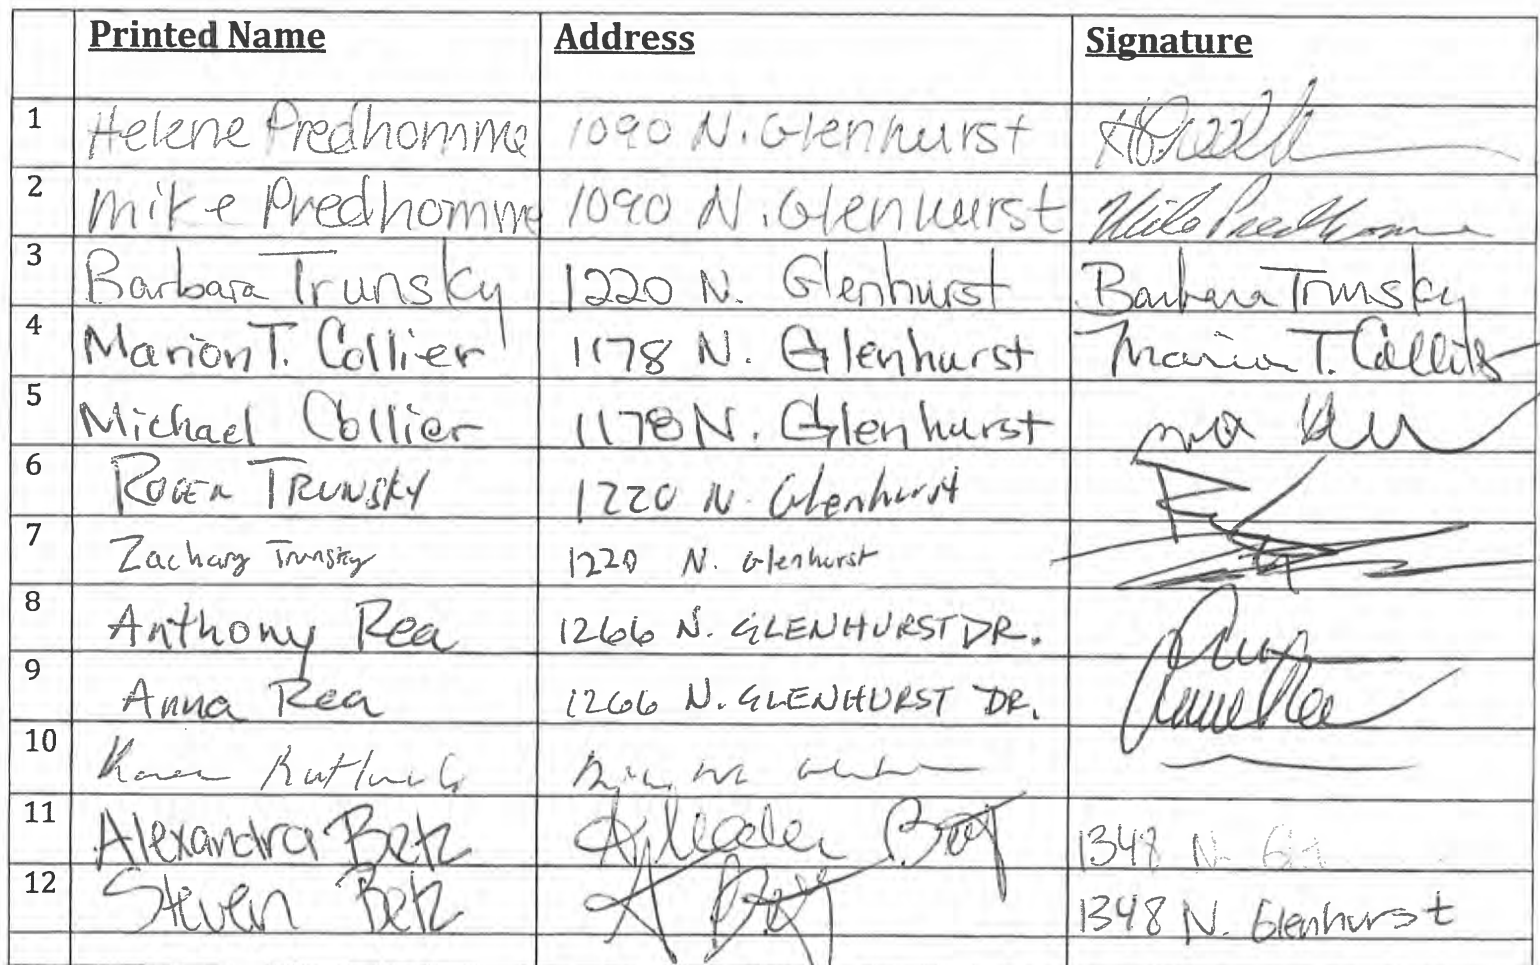 Printed Name Address Signature
1 Helene Predhomme 1090 N. Glenhurst
2 Mike Predhomme 1090 N. Glenhurst Mike Predhomme
3 Barbara Trunsky 1220 N. Glenhurst Barbara Trunsky
4 Marion T. Collier 1178 N. Glenhurst Marion T. Collier
5 Michael Collier 1178 N. Glenhurst
6 Roger Trunsky 1220 N. Glenhurst
7 Zachary Trunsky 1220 N. Glenhurst
8 Anthony Rea 1266 N. GLENHURST DR.
9 Anna Rea 1266 N. GLENHURST DR. Anna Rea
10 Karen
11 Alexandra Betz 1348 N. Gl
12 Steven Betz 1348 N. Glenhurst